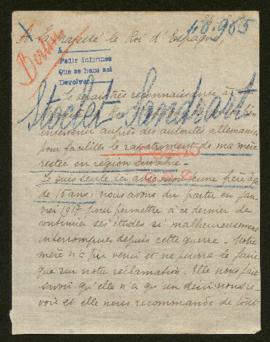 A sa Majesté le Roi d'Espagne
48.965
Berlin
A
Pedir informes
Que se hace así
Devolver
Stoclet - Sandrart
intervenir auprès des autorités allemandes
pour faciliter le rapatriement de ma mère
restée en région envahie.
Je suis seule ici avec mon frère âgé
de 15 ans: nous avons dû partir en Jan-
vier 1917 pour permettre à ce dernier de
continuer ses études si malheureusement
interrompues depuis cette guerre. Notre
mère n'a pu venir et ne pourra le faire
que sur notre réclamation. Elle nous fait
savoir qu'elle n'a qu'un désir nous re-
voir et elle nous recommande de tout